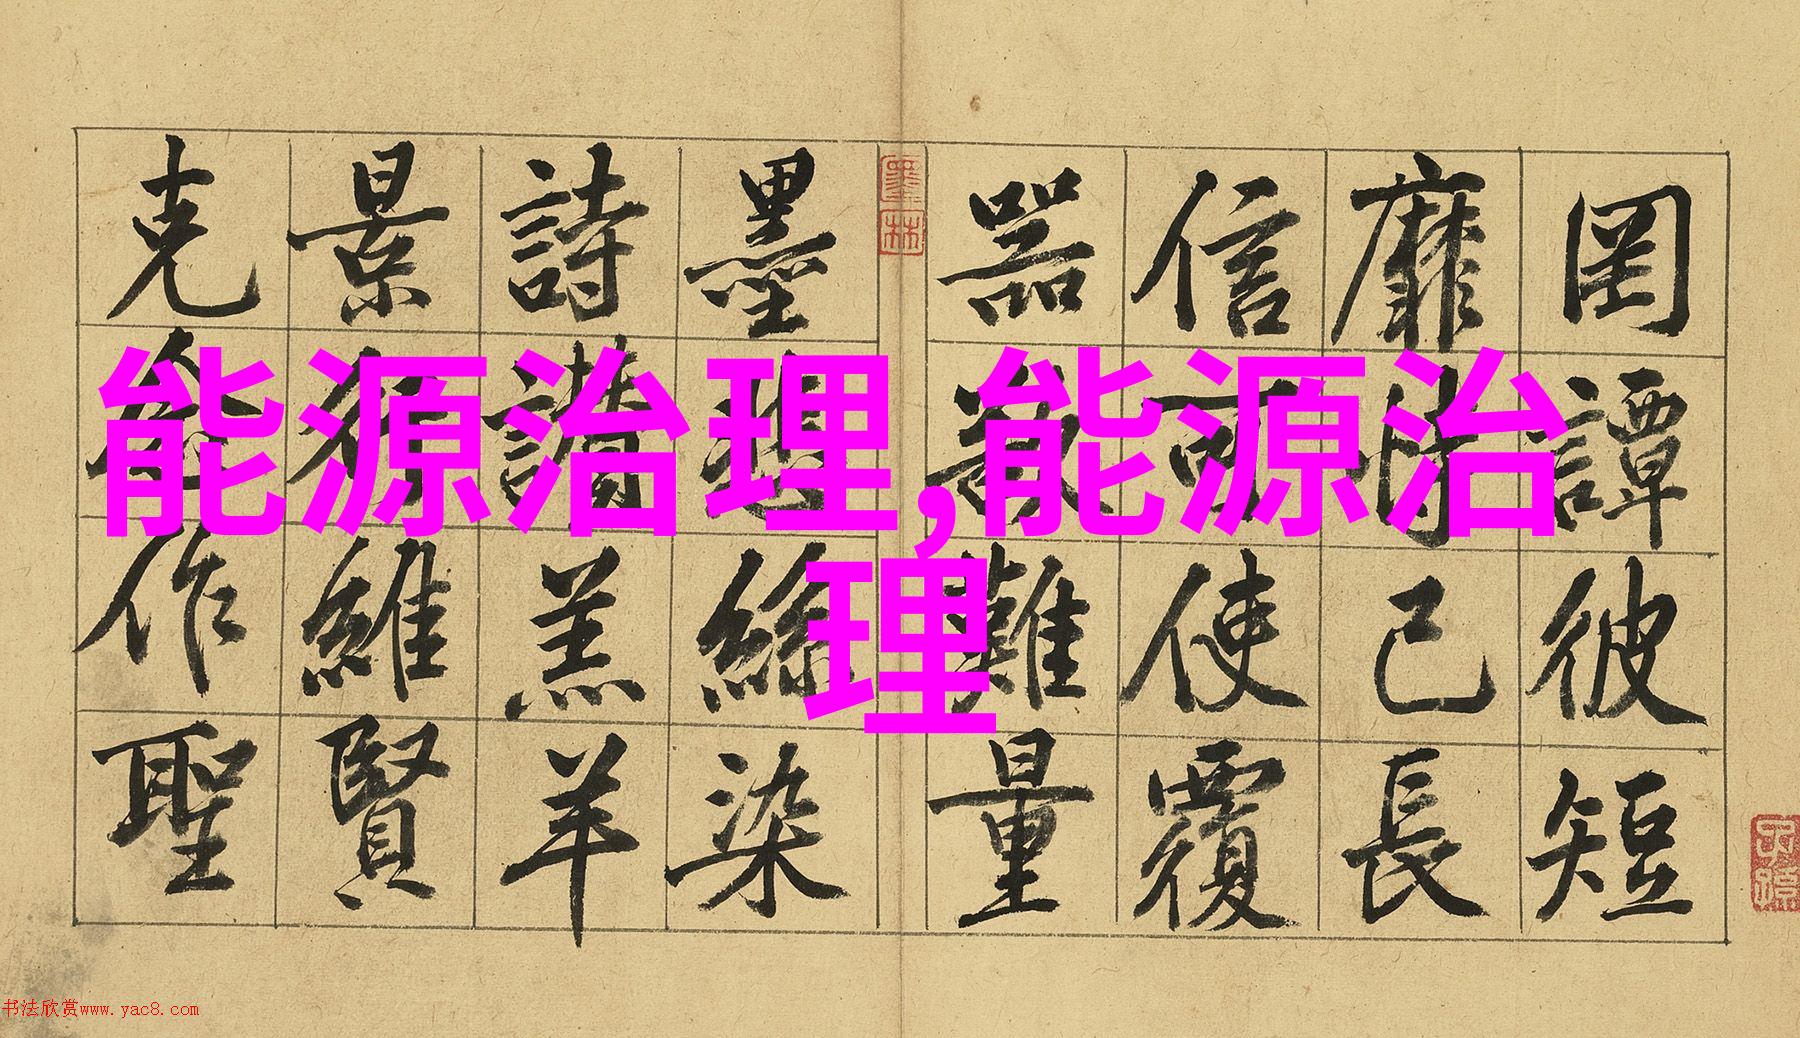 能源治理,能源治
理
罔譚彼短
靡恃己長
信可使覆
器難量
墨悲絲染
詩讃羔羊
景行維賢
克念作聖
墨林
子孫
书法欣赏www.yac8.com